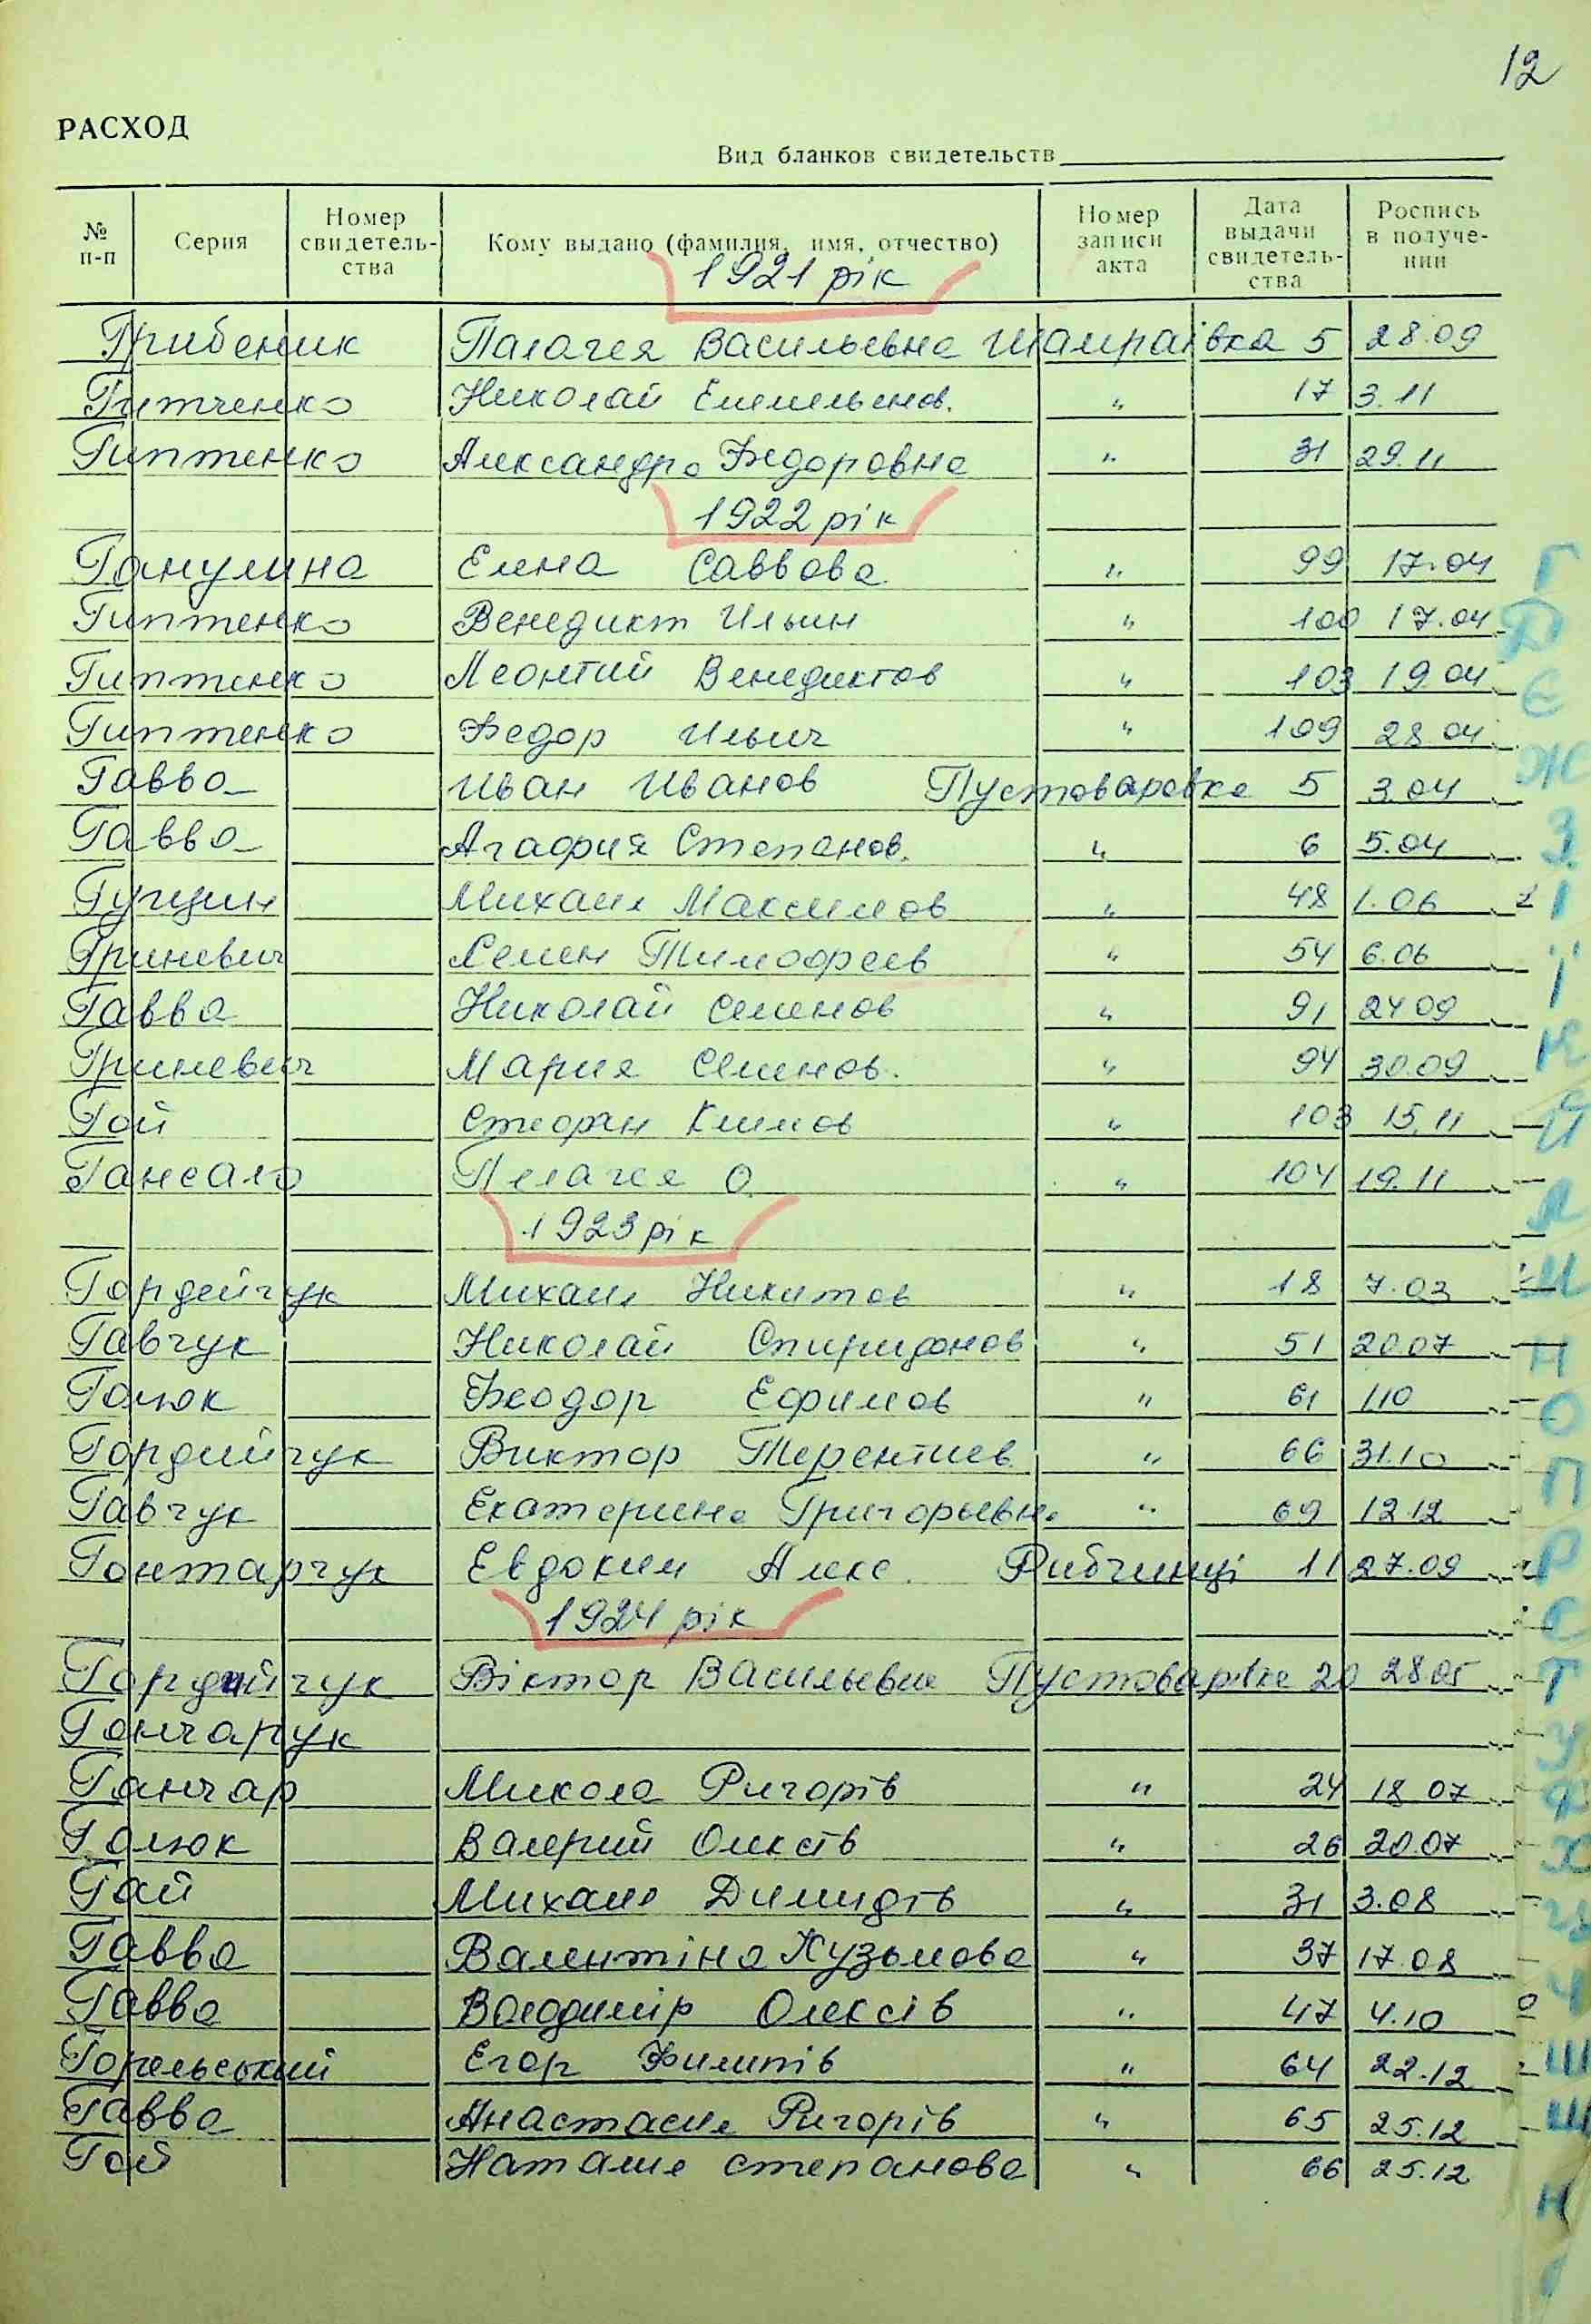 12
РАСХОД
Вид бланков свидетельств
№ п-п Серия Номер свидетель-ства Кому выдано (фамилия, имя, отчество) Номер записи акта Дата выдачи свидетель-ства Роспись в получе-нии
1921 рік
Грибеник Палагея Васильевна Шамраївка 5 28.09
Гитченко Николай Емельянов. " 17 3.11
Гиптенко Александра Федоровна " 31 29.11
1922 рік
Ганулина Елена Саввова " 99 17.04
Гиптенко Венедикт Ильин " 100 17.04
Гиптенко Леонтий Венедиктов " 103 19.04
Гиптенко Федор Ильич " 109 28 04
Гавва Иван Иванов Пустоваровка 5 3.04
Гавва Агафия Степанов. " 6 5.04
Гущин Михаил Максимов " 48 1.06
Гриневич Семен Тимофеев " 54 6.06
Гавва Николай Семенов " 91 24 09
Гриневич Мария Семенов. " 94 30.09
Гой Стефан Климов " 103 15.11
Гансало Пелагея О. " 104 19.11
1923 рік
Гордейчук Михаил Никитов " 18 7.03
Гавчук Николай Спиридонов " 51 20.07
Голюк Феодор Ефимов " 61 1.10
Гордийчук Виктор Терентиев " 66 31.10
Гавчук Екатерина Григорьевн. " 69 12.12
Гонтарчук Евдоким Алекс. Рибчинці 11 27.09
1924 рік
Гордийчук Віктор Васильевич Пустоварівка 20 28 05
Гончарук
Ганчар Микола Ригорів " 24 18 07
Голюк Валерий Олексів " 26 20.07
Гай Михаил Демидів " 31 3.08
Гавва Валентіна Кузьмова " 37 17.08
Гавва Володимір Олексів " 47 4.10
Горельський Егор Филипів " 64 22.12
Гавва Анастасия Ригорів " 65 25.12
Гой Наталия Степанова " 66 25.12
Г
Д
Є
Ж
З
І
Ї
К
Й
Л
М
Н
О
П
Р
С
Т
У
Ф
Х
Ц
Ч
Ш
Щ